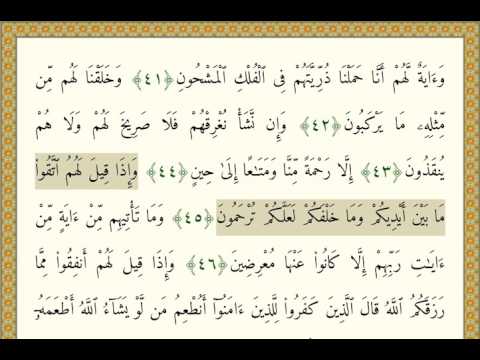 وَءَايَةٌ لَّهُمْ أَنَّا حَمَلْنَا ذُرِّيَّتَهُمْ فِى ٱلْفُلْكِ ٱلْمَشْحُونِ ﴿٤١﴾ وَخَلَقْنَا لَهُم مِّن
مِّثْلِهِۦ مَا يَرْكَبُونَ ﴿٤٢﴾ وَإِن نَّشَأْ نُغْرِقْهُمْ فَلَا صَرِيخَ لَهُمْ وَلَا هُمْ
يُنقَذُونَ ﴿٤٣﴾ إِلَّا رَحْمَةً مِّنَّا وَمَتَـٰعًا إِلَىٰ حِينٍ ﴿٤٤﴾ وَإِذَا قِيلَ لَهُمُ ٱتَّقُوا۟
مَا بَيْنَ أَيْدِيكُمْ وَمَا خَلْفَكُمْ لَعَلَّكُمْ تُرْحَمُونَ ﴿٤٥﴾ وَمَا تَأْتِيهِم مِّنْ ءَايَةٍ مِّنْ
ءَايَـٰتِ رَبِّهِمْ إِلَّا كَانُوا۟ عَنْهَا مُعْرِضِينَ ﴿٤٦﴾ وَإِذَا قِيلَ لَهُمْ أَنفِقُوا۟ مِمَّا
رَزَقَكُمُ ٱللَّهُ قَالَ ٱلَّذِينَ كَفَرُوا۟ لِلَّذِينَ ءَامَنُوٓا۟ أَنُطْعِمُ مَن لَّوْ يَشَآءُ ٱللَّهُ أَطْعَمَهُۥٓ